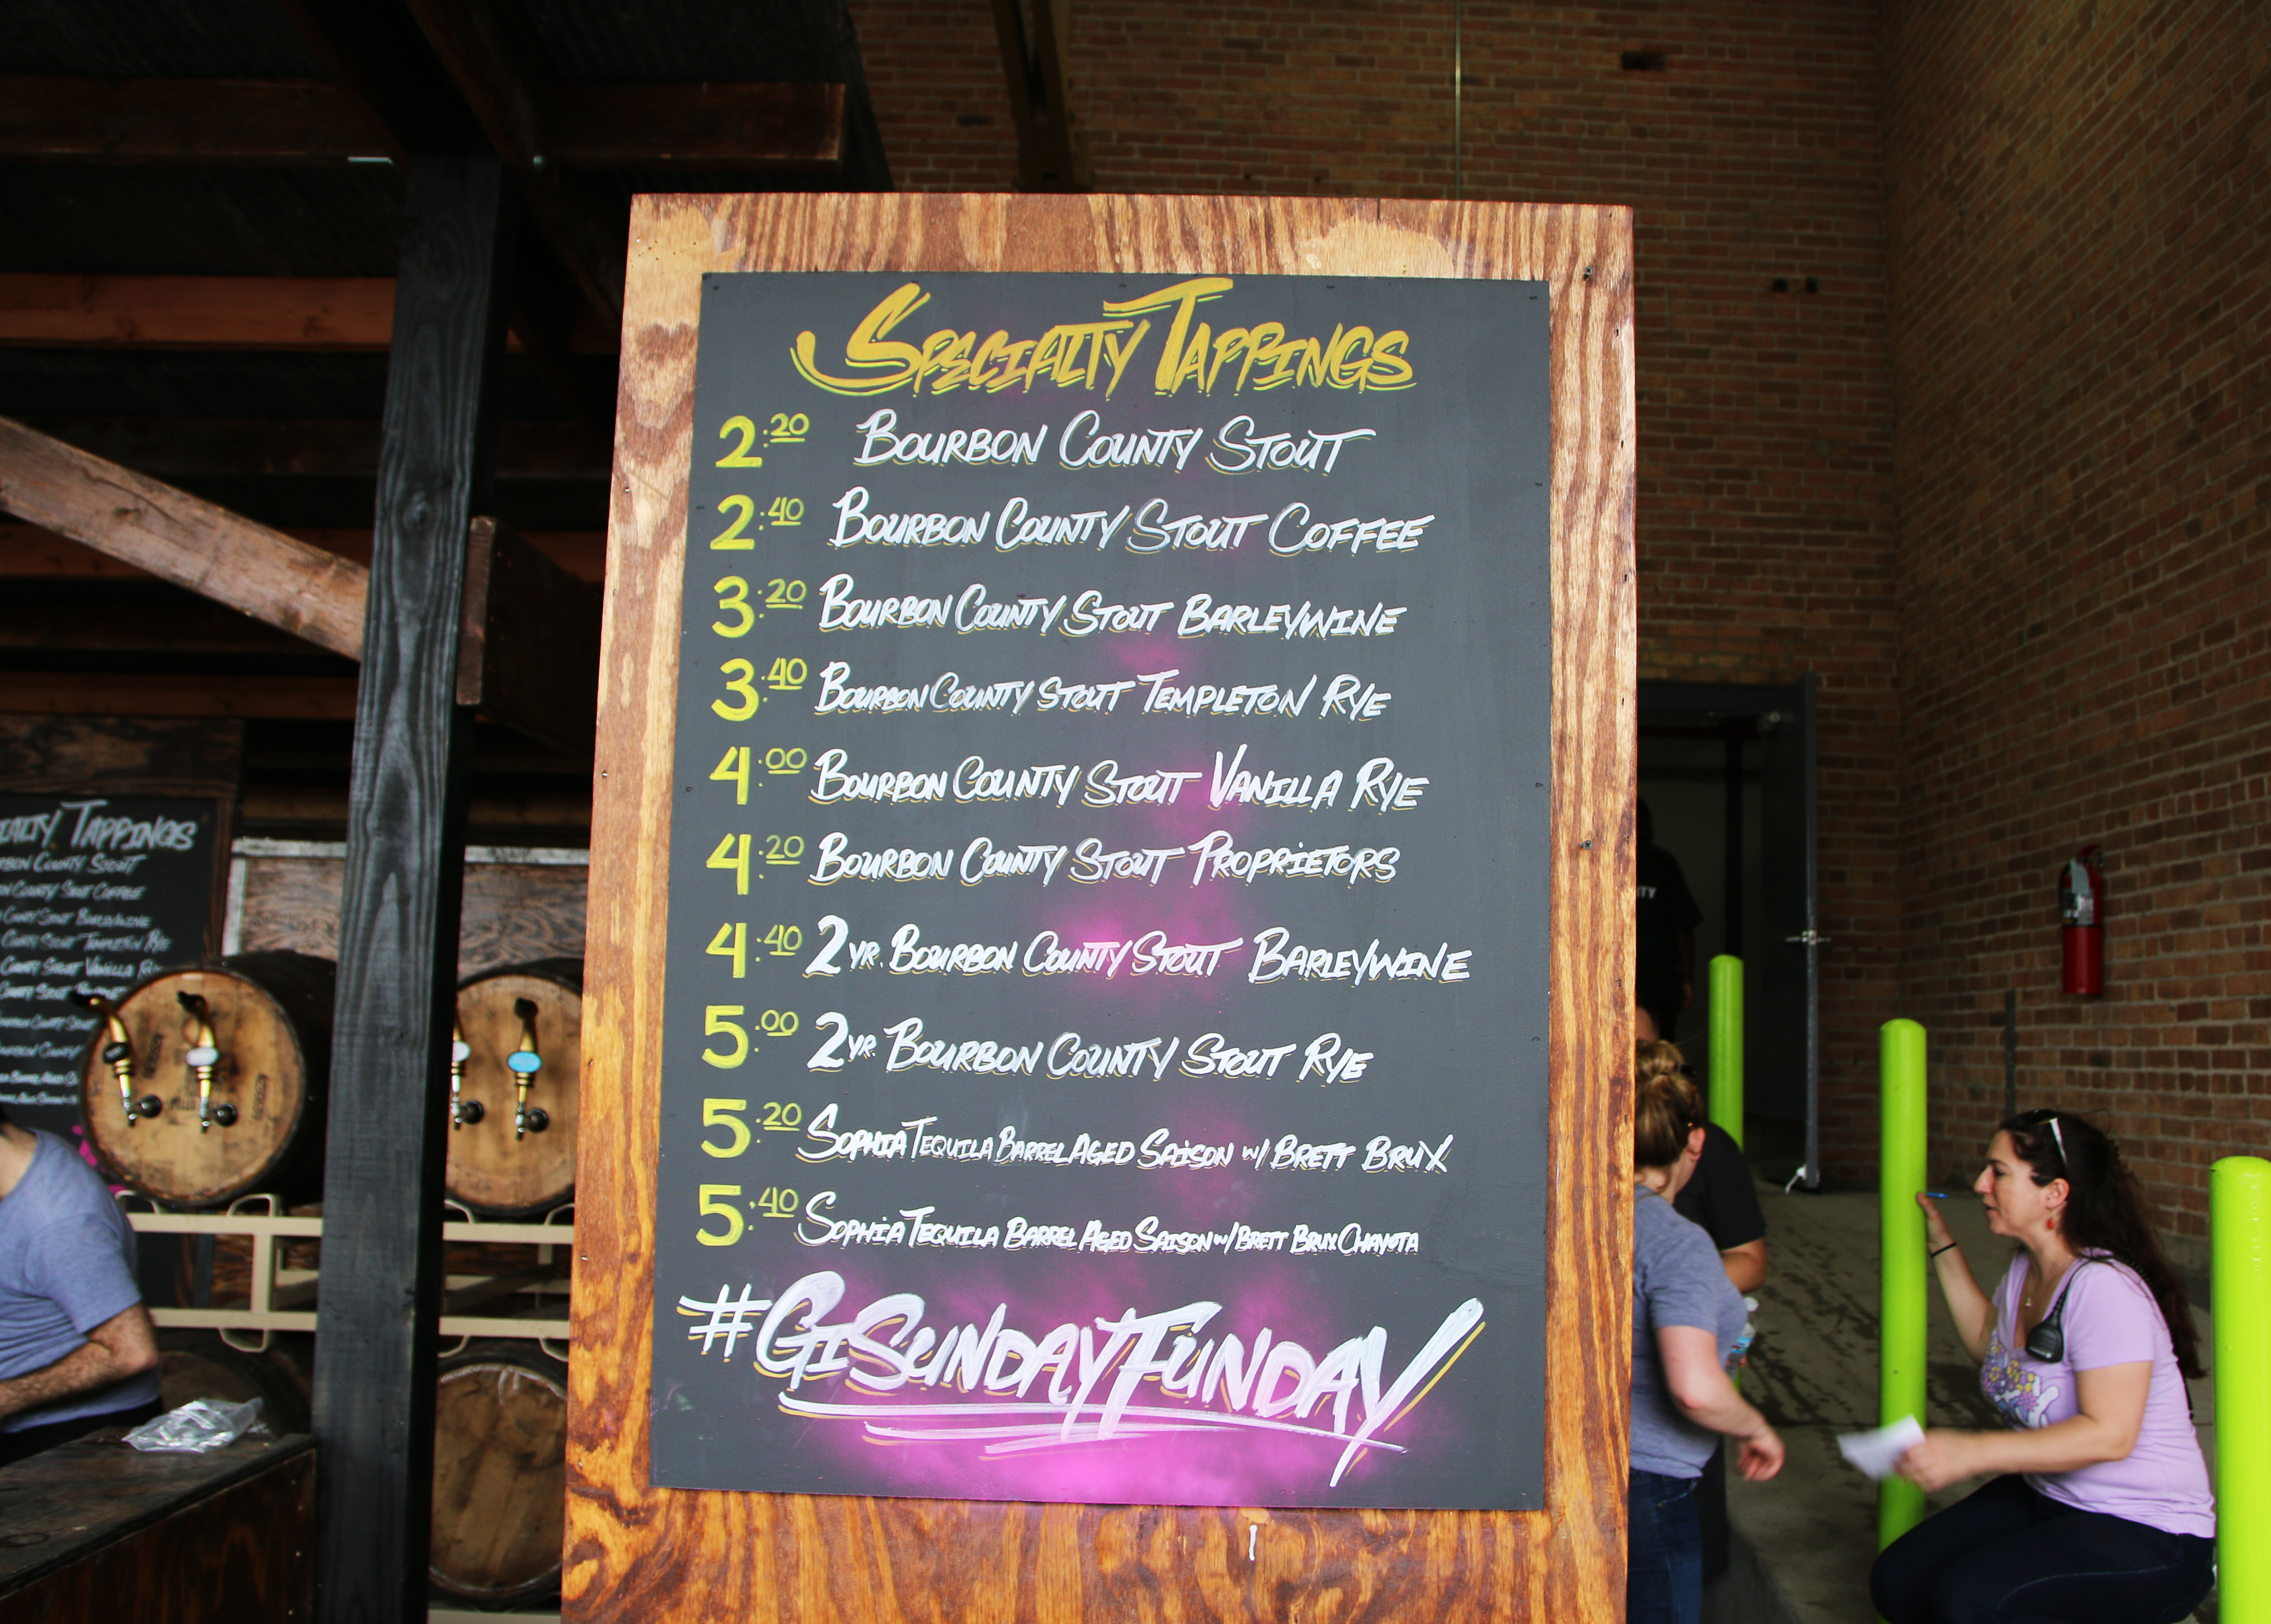 Specialty Tappings
2:20 Bourbon County Stout
2:40 Bourbon County Stout Coffee
3:20 Bourbon County Stout Barleywine
3:40 Bourbon County Stout Templeton Rye
4:00 Bourbon County Stout Vanilla Rye
4:20 Bourbon County Stout Proprietors
4:40 2yr. Bourbon County Stout Barleywine
5:00 2yr. Bourbon County Stout Rye
5:20 Sophia Tequila Barrel Aged Saison w/ Brett Brux
5:40 Sophia Tequila Barrel Aged Saison w/ Brett Brux Chayota
#GISundayFunday
Tappings
County Stout
County Stout Coffee
County Stout Barleywine
County Stout Templeton Rye
County Stout Vanilla
County Stout